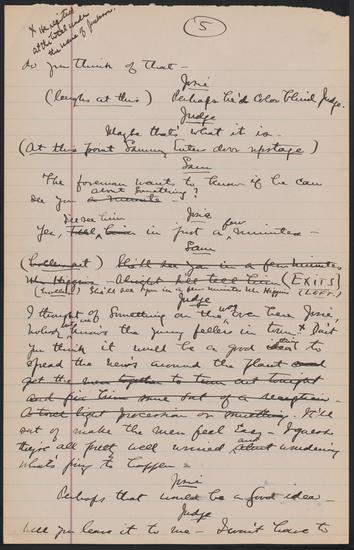 x He registered
at the hotel under
the name of Jackson.
5
do you think of that —
Josie
(laughs at this) Perhaps he'd color blind Judge.
Judge
Maybe that's what it is —
(At this point Sammy Enters door upstage)
Sam
The foreman wants to know if he can
about something?
see you a minute
I'll see him
Josie
few
Yes, tell him in just a minutes —
Sam
(Exits)
(calls) She'll see you in a few minutes Mr. Higgins (LEFT)
Judge
way
I thought of something on the over here Josie,
knows the young fellers in town & Don't
you think it would be a good idea to
spread the news around the plant and
got the together to turn out tonight
and give him some sort of a reception —
A torch light procession or something. It'll
sort of make the men feel Easy — I guess
and
they're all pretty well worried about wondering
what's going to happen —
Josie
Perhaps that would be a good idea —
Judge
will you leave it to me — I won't have to